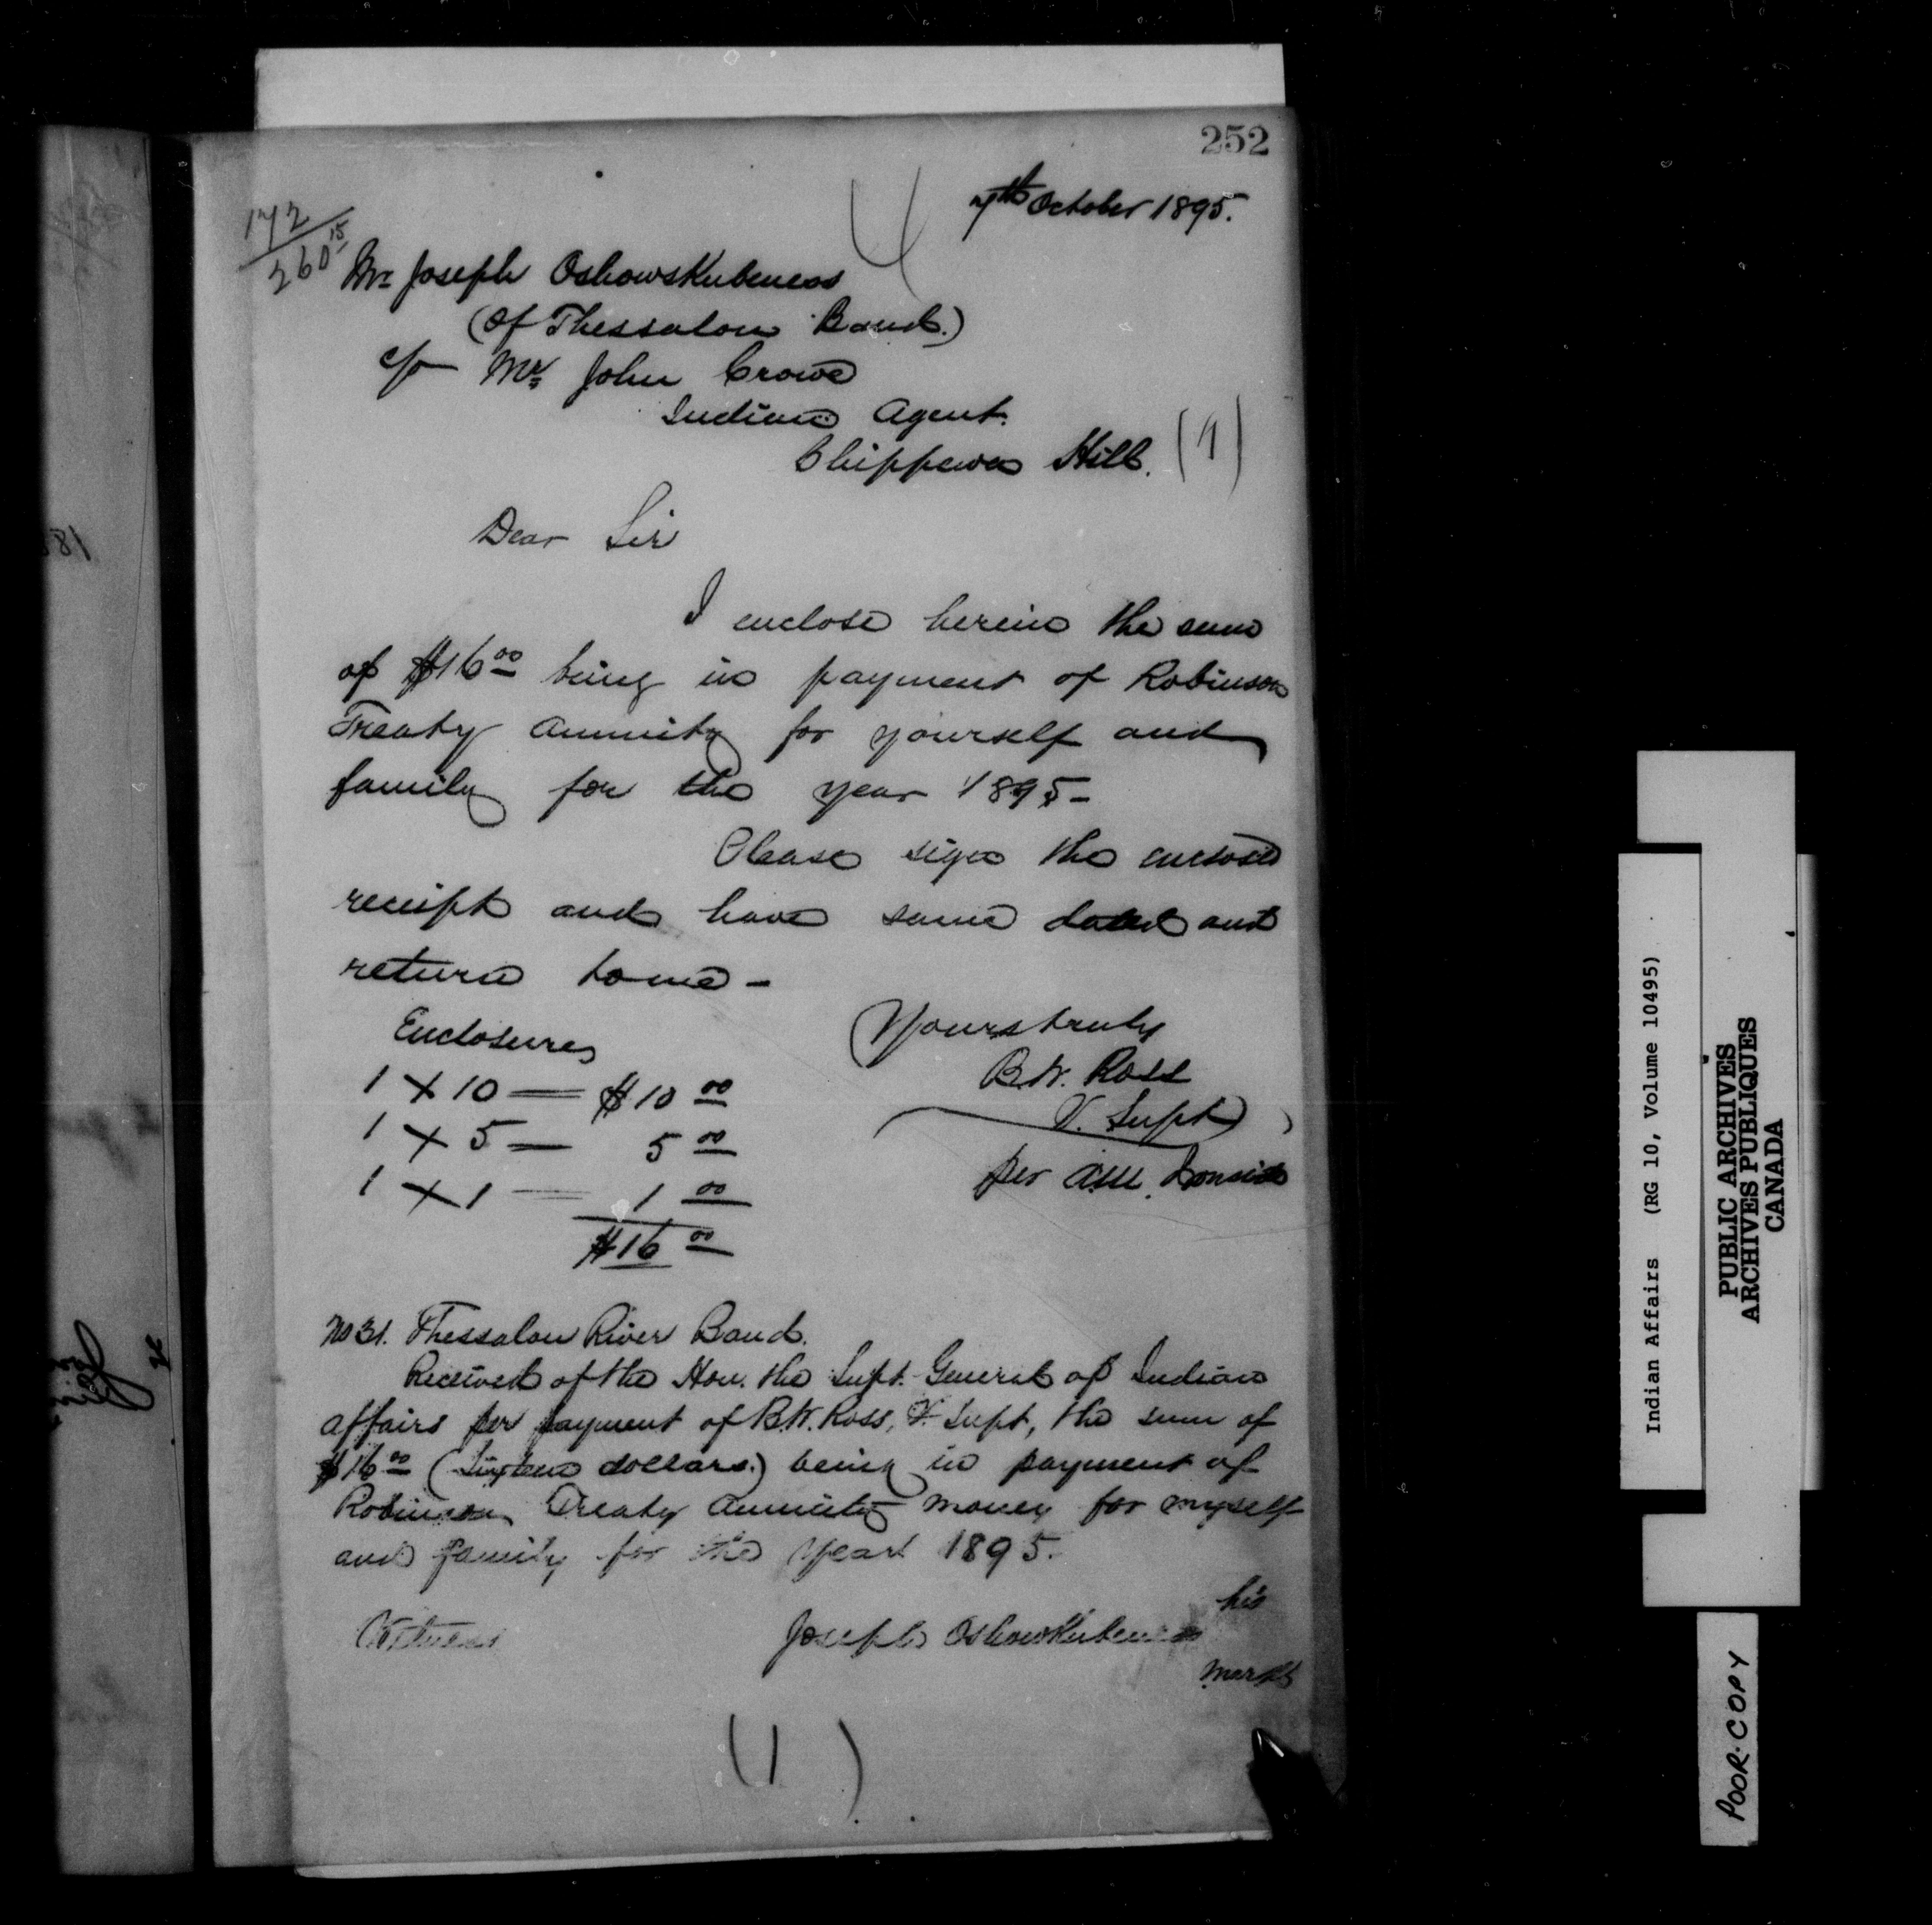 252
7th October 1895.
172
260 15
Mr Joseph Oshowskubeness
(Of Thessalon Band.)
c/o Mr John Crowe
Indian Agent.
Chippewa Hill. (1)
Dear Sir
I enclose herein the sum
of $16 00 being in payment of Robinson
Treaty Annuity for yourself and
family for the year 1895-
Please sign the enclosed
receipt and have same dated and
return to me -
Enclosures
1 x 10 — $10 00
1 x 5 — 5 00
1 x 1 — 1 00
$16 00
Yours truly
B.W. Ross
V. Supt
per
No 31. Thessalon River Band.
Received of the Hon. the Supt. General of Indian
Affairs per payment of B.W. Ross, V. Supt, the sum of
$16 00 (Sixteen dollars.) being in payment of
Robinson Treaty Annuity money for myself
and family for the year 1895.
his
Witness Joseph Oshowskubeness
mark
(1)
Indian Affairs (RG 10, Volume 10495)
PUBLIC ARCHIVES
ARCHIVES PUBLIQUES
CANADA
POOR COPY